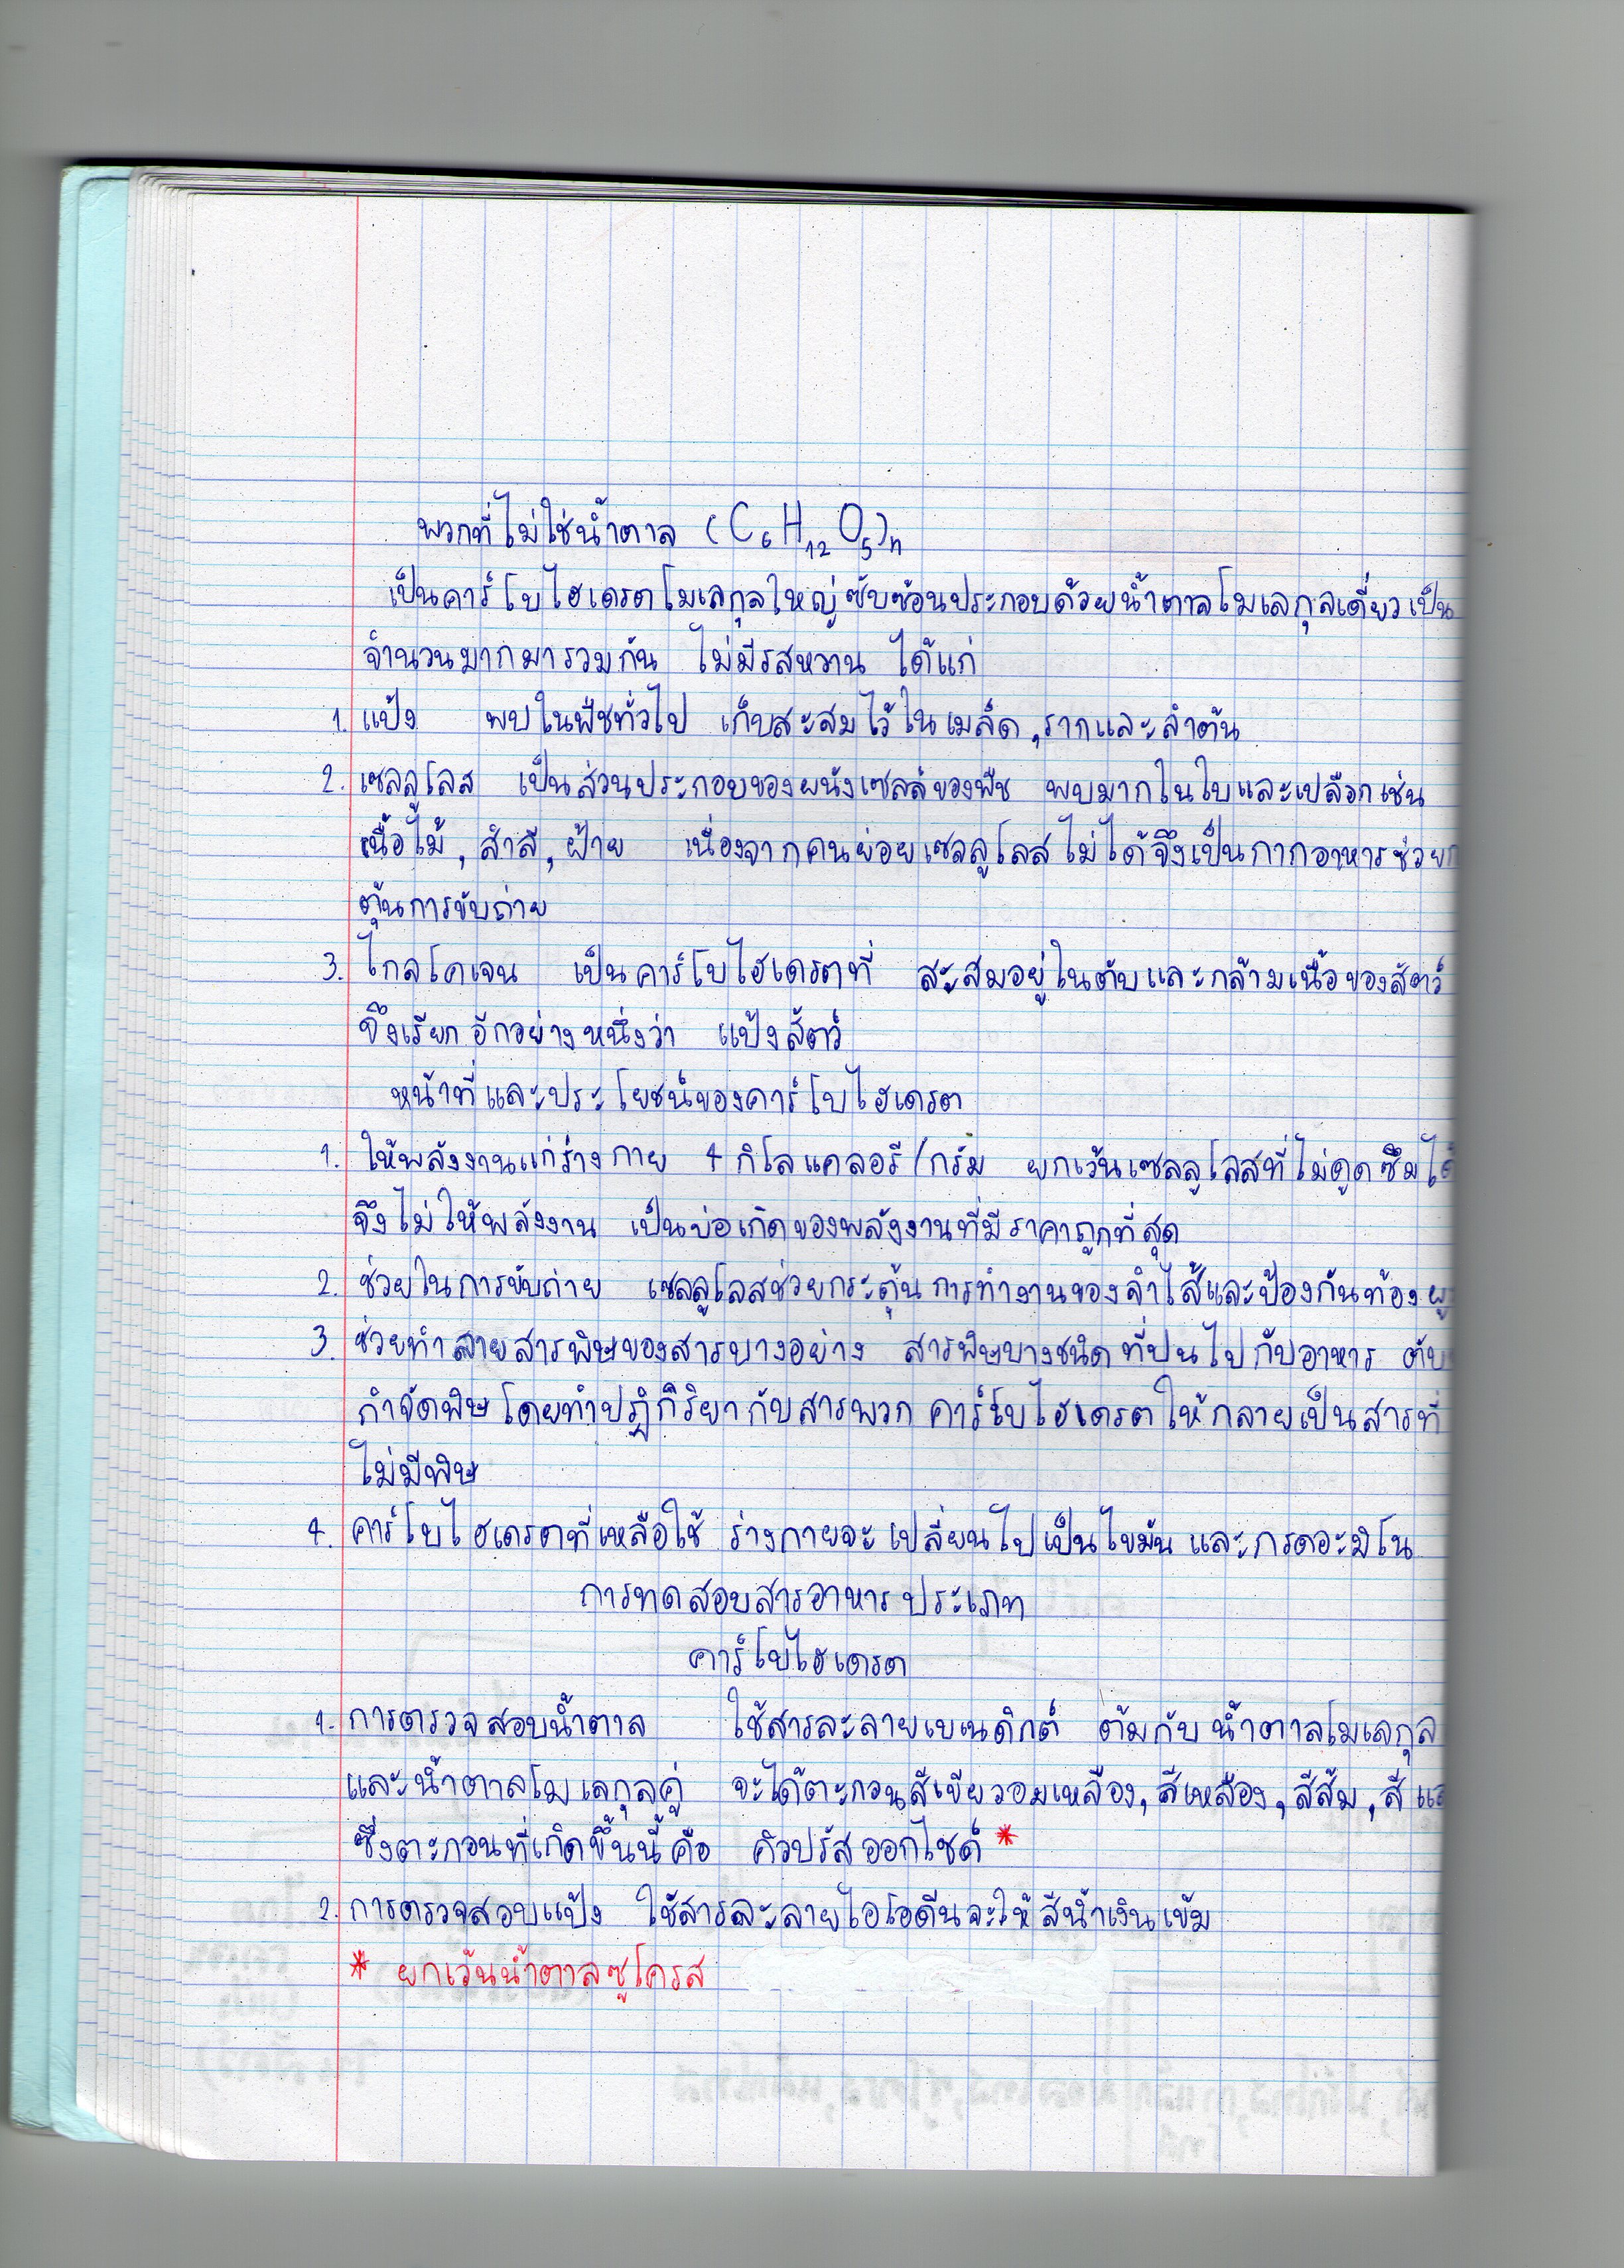 พวกที่ไม่ใช่น้ำตาล (C₆H₁₂O₅)n
เป็นคาร์โบไฮเดรตโมเลกุลใหญ่ซับซ้อนประกอบด้วยน้ำตาลโมเลกุลเดี่ยวเป็น
จำนวนมากมารวมกัน ไม่มีรสหวาน ได้แก่
1. แป้ง พบในพืชทั่วไป เก็บสะสมไว้ในเมล็ด,รากและลำต้น
2. เซลลูโลส เป็นส่วนประกอบของผนังเซลล์ของพืช พบมากในใบและเปลือกเช่น
เนื้อไม้, สำลี, ฝ้าย เนื่องจากคนย่อยเซลลูโลสไม่ได้จึงเป็นกากอาหารช่วยก
ตุ้นการขับถ่าย
3. ไกลโคเจน เป็นคาร์โบไฮเดรตที่ สะสมอยู่ในตับและกล้ามเนื้อของสัตว์
จึงเรียกอีกอย่างหนึ่งว่า แป้งสัตว์
หน้าที่และประโยชน์ของคาร์โบไฮเดรต
1. ให้พลังงานแก่ร่างกาย 4 กิโลแคลอรี/กรัม ยกเว้นเซลลูโลสที่ไม่ดูดซึมได้
จึงไม่ให้พลังงาน เป็นบ่อเกิดของพลังงานที่มีราคาถูกที่สุด
2. ช่วยในการขับถ่าย เซลลูโลสช่วยกระตุ้นการทำงานของลำไส้และป้องกันท้องผู
3. ช่วยทำลายสารพิษของสารบางอย่าง สารพิษบางชนิดที่ปนไปกับอาหาร ตับ
กำจัดพิษโดยทำปฏิกิริยากับสารพวกคาร์โบไฮเดรตให้กลายเป็นสารที่
ไม่มีพิษ
4. คาร์โบไฮเดรตที่เหลือใช้ ร่างกายจะเปลี่ยนไปเป็นไขมันและกรดอะมิโน
การทดสอบสารอาหารประเภท
คาร์โบไฮเดรต
1. การตรวจสอบน้ำตาล ใช้สารละลายเบเนดิกต์ ต้มกับน้ำตาลโมเลกุล
และน้ำตาลโมเลกุลคู่ จะได้ตะกอนสีเขียวอมเหลือง, สีเหลือง, สีส้ม, สีแ
ซึ่งตะกอนที่เกิดขึ้นนี้คือ คิวปรัสออกไซด์ *
2. การตรวจสอบแป้ง ใช้สารละลายไอโอดีนจะให้สีน้ำเงินเข้ม
* ยกเว้นน้ำตาลซูโครส